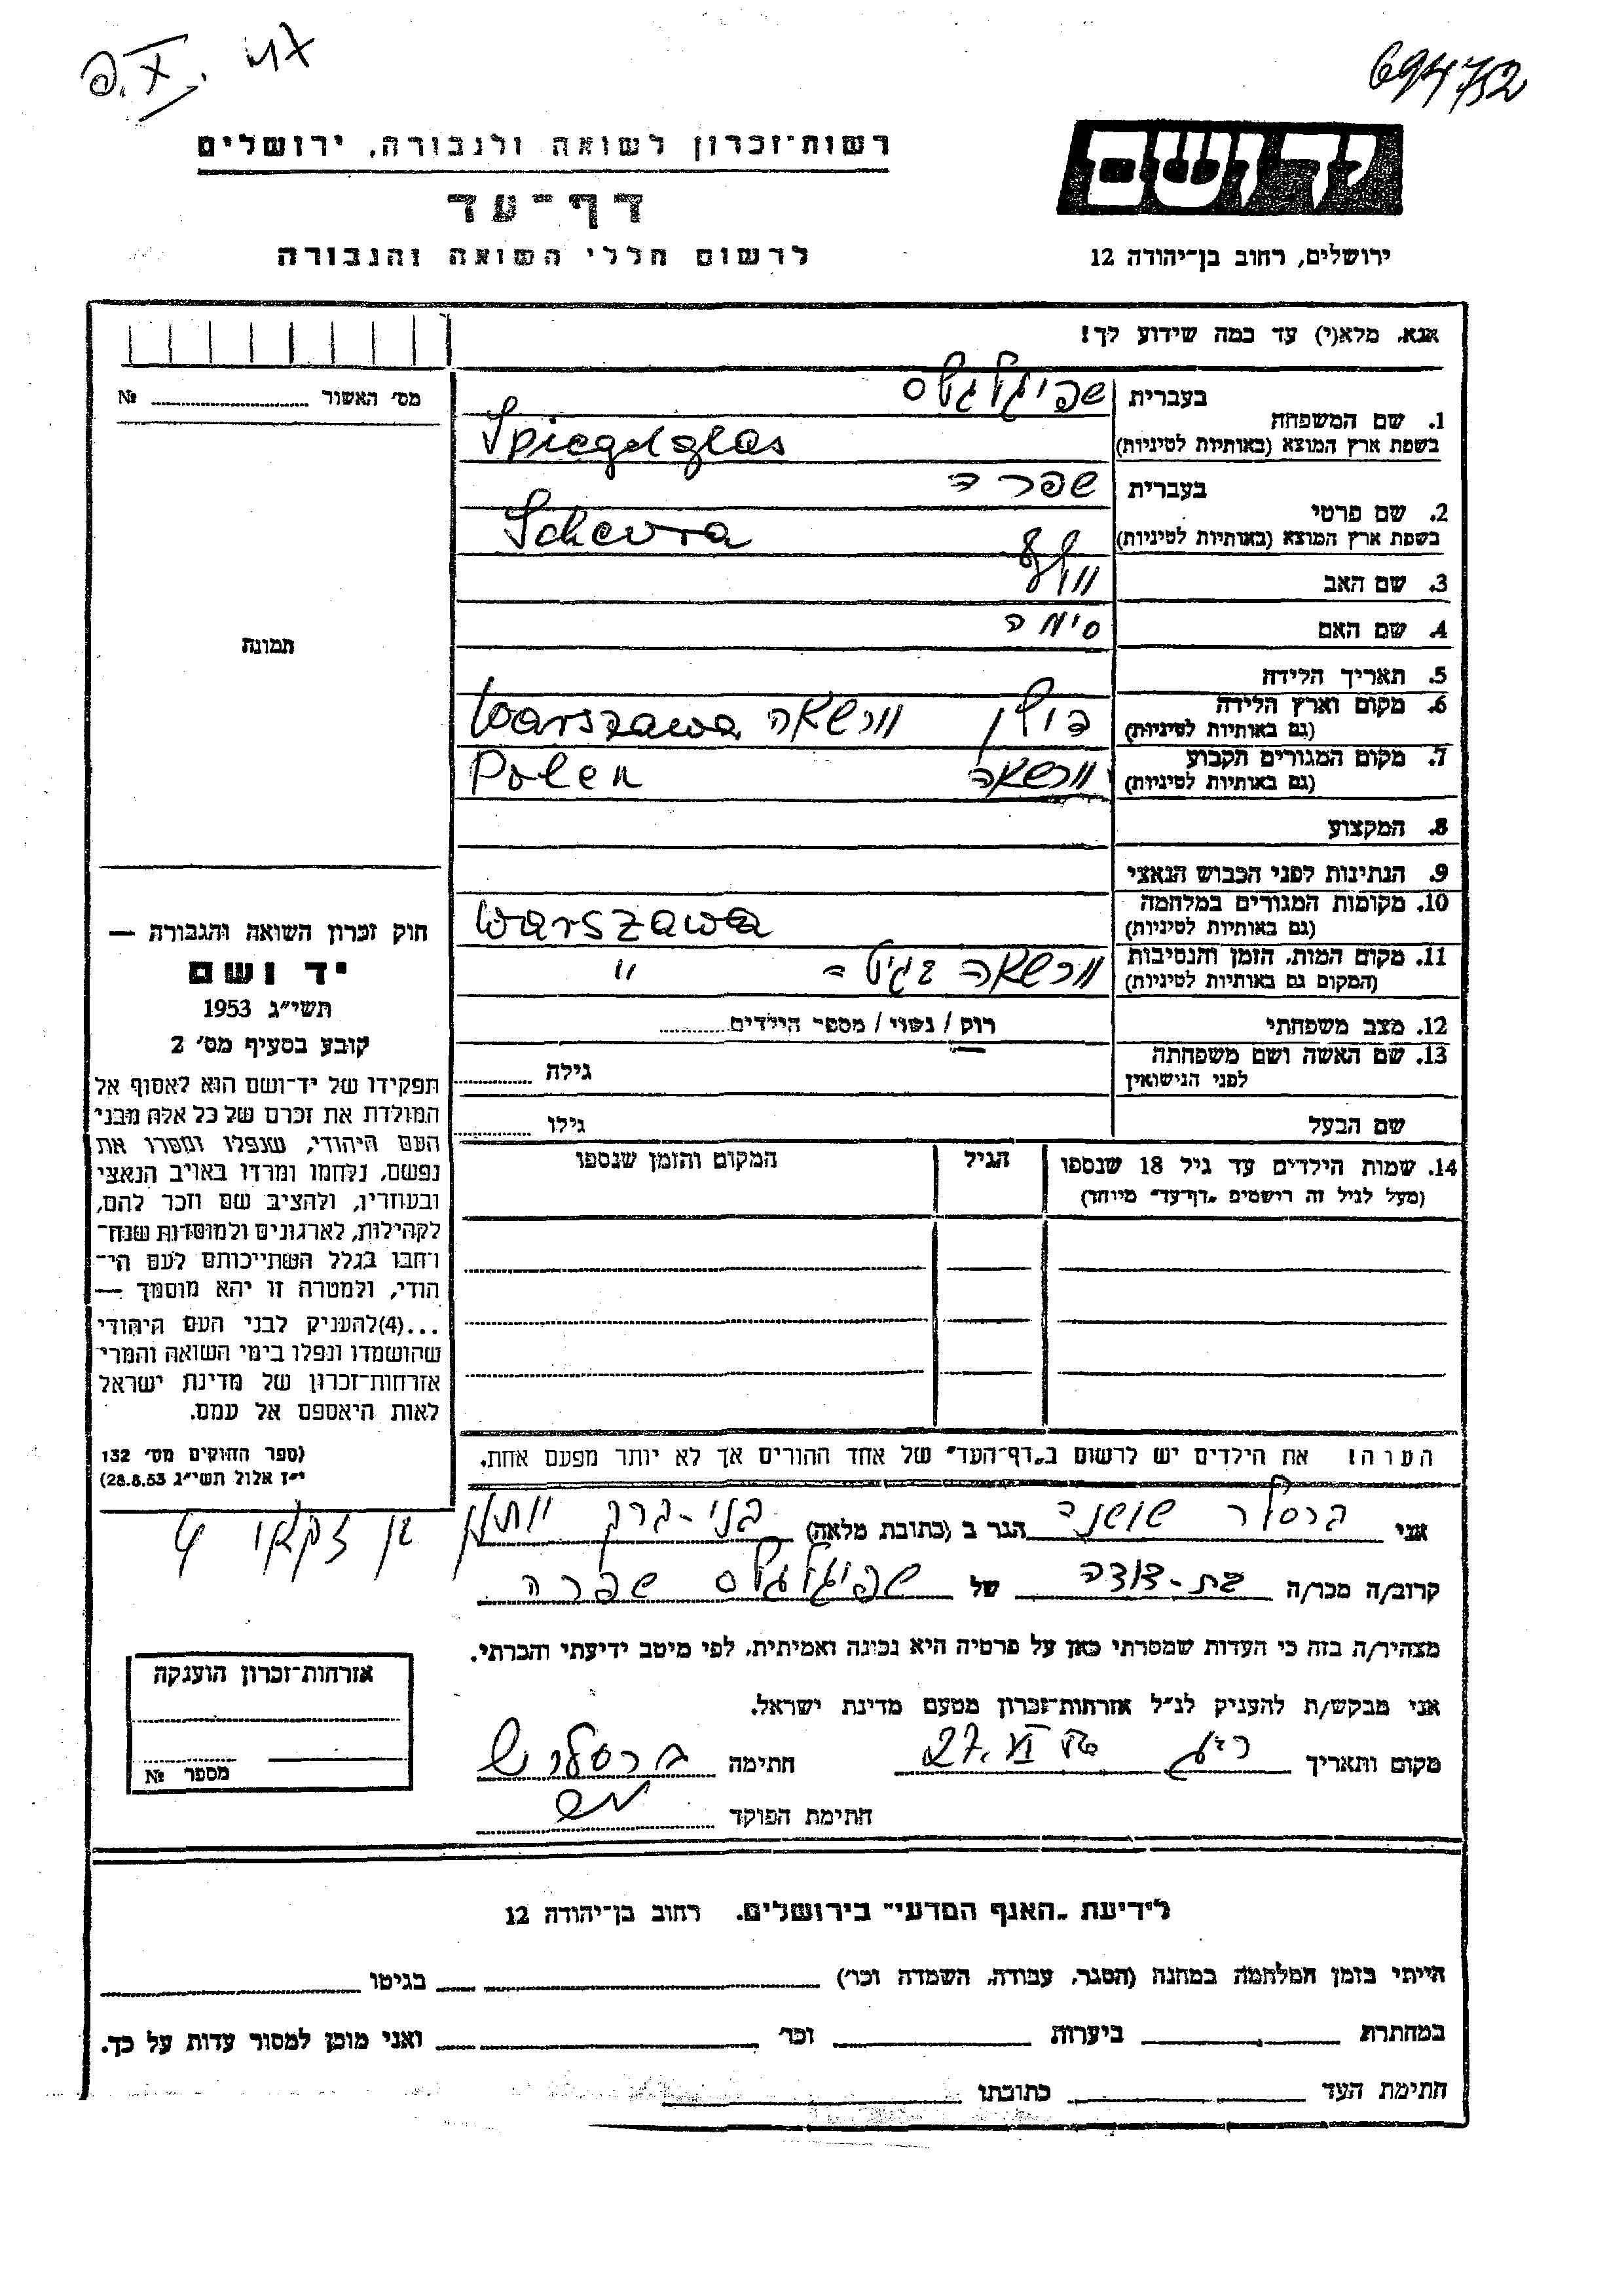 694752
רשות־זכרון לשואה ולגבורה, ירושלים
יד ושם
דף־עד
לרשום חללי השואה והגבורה
ירושלים, רחוב בן־יהודה 12
אנא, מלא(י) עד כמה שידוע לך!
מס׳ האשור № 
1. שם המשפחה בעברית שפיגלגלס
בשפת ארץ המוצא (באותיות לטיניות) Spiegelglas
2. שם פרטי בעברית שפרה
בשפת ארץ המוצא (באותיות לטיניות)
3. שם האב וולף
4. שם האם סימה
5. תאריך הלידה
6. מקום וארץ הלידה (גם באותיות לטיניות) פולין וורשאה Warszawa
7. מקום המגורים הקבוע (גם באותיות לטיניות) וורשאה Polen
8. המקצוע
9. הנתינות לפני הכבוש הנאצי
10. מקומות המגורים במלחמה (גם באותיות לטיניות) Warszawa
11. מקום המות, הזמן והנסיבות (המקום גם באותיות לטיניות) וורשאה "
12. מצב משפחתי רוק / נשוי / מספר הילדים
13. שם האשה ושם משפחתה לפני הנישואין גילה
שם הבעל גילו
14. שמות הילדים עד גיל 18 שנספו הגיל המקום והזמן שנספו
(מעל לגיל זה רישמים "דף־עד" מיוחד)
הערה! את הילדים יש לרשום ב"דף־העד" של אחד ההורים אך לא יותר מפעם אחת.
תמונה
חוק זכרון השואה והגבורה —
יד ושם
תשי״ג 1953
קובע בסעיף מס׳ 2
תפקידו של יד־ושם הוא לאסוף אל
המולדת את זכרם של כל אלה מבני
העם היהודי, שנפלו ומסרו את
נפשם, נלחמו ומרדו באויב הנאצי
ובעוזריו, ולהציב שם וזכר להם,
לקהילות, לארגונים ולמוסדות שנח־
רחבו בגלל השתייכותם לעם הי־
הודי, ולמטרה זו יהא מוסמך —
...(4)להעניק לבני העם היהודי
שהושמדו ונפלו בימי השואה והמרי
אזרחות־זכרון של מדינת ישראל
לאות היאספם אל עמם.
(ספר החוקים מס׳ 132
י״ז אלול תשי״ג 28.8.53)
אני ברסלר שושנה הגר ב (כתובת מלאה) בני-ברק יוחנן בן זכאי
קרוב/ה מכר/ה בת-דודה של שפיגלגלס שפרה
מצהיר/ה בזה כי העדות שמסרתי כאן על פרטיה היא נכונה ואמיתית, לפי מיטב ידיעתי והכרתי.
אני מבקש/ת להעניק לנ״ל אזרחות־זכרון מטעם מדינת ישראל.
מקום ותאריך 27.VI חתימה ברסלר ש
חתימת הפוקד
אזרחות־זכרון הוענקה
מספר №
לידיעת "האגף המדעי" בירושלים. רחוב בן־יהודה 12
הייתי בזמן המלחמה במחנה (הסגר, עבודה, השמדה וכר׳) בגיטו
במחתרת ביערות וכר׳ ואני מוכן למסור עדות על כך.
חתימת העד כתובתו